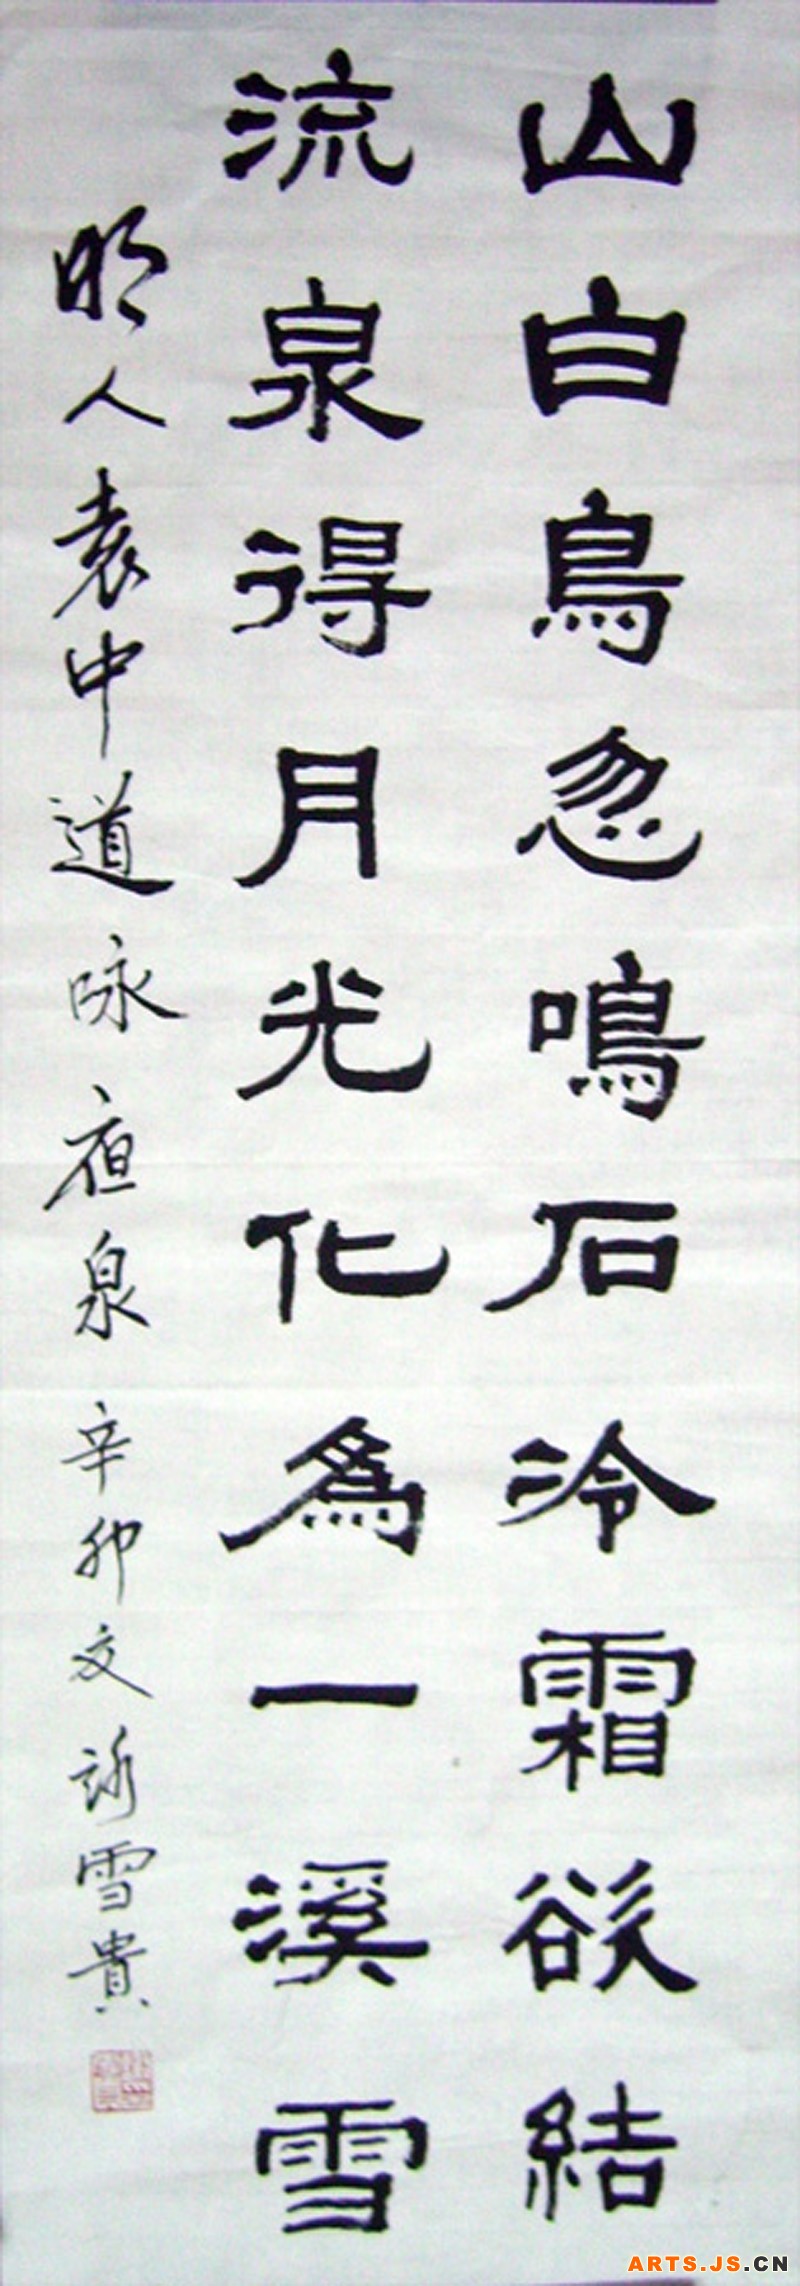 山白鳥忽鳴石泠霜欲結
流泉得月光化為一溪雪
明人袁中道咏夜泉 辛卯文詠雪貴
ARTS.JS.CN